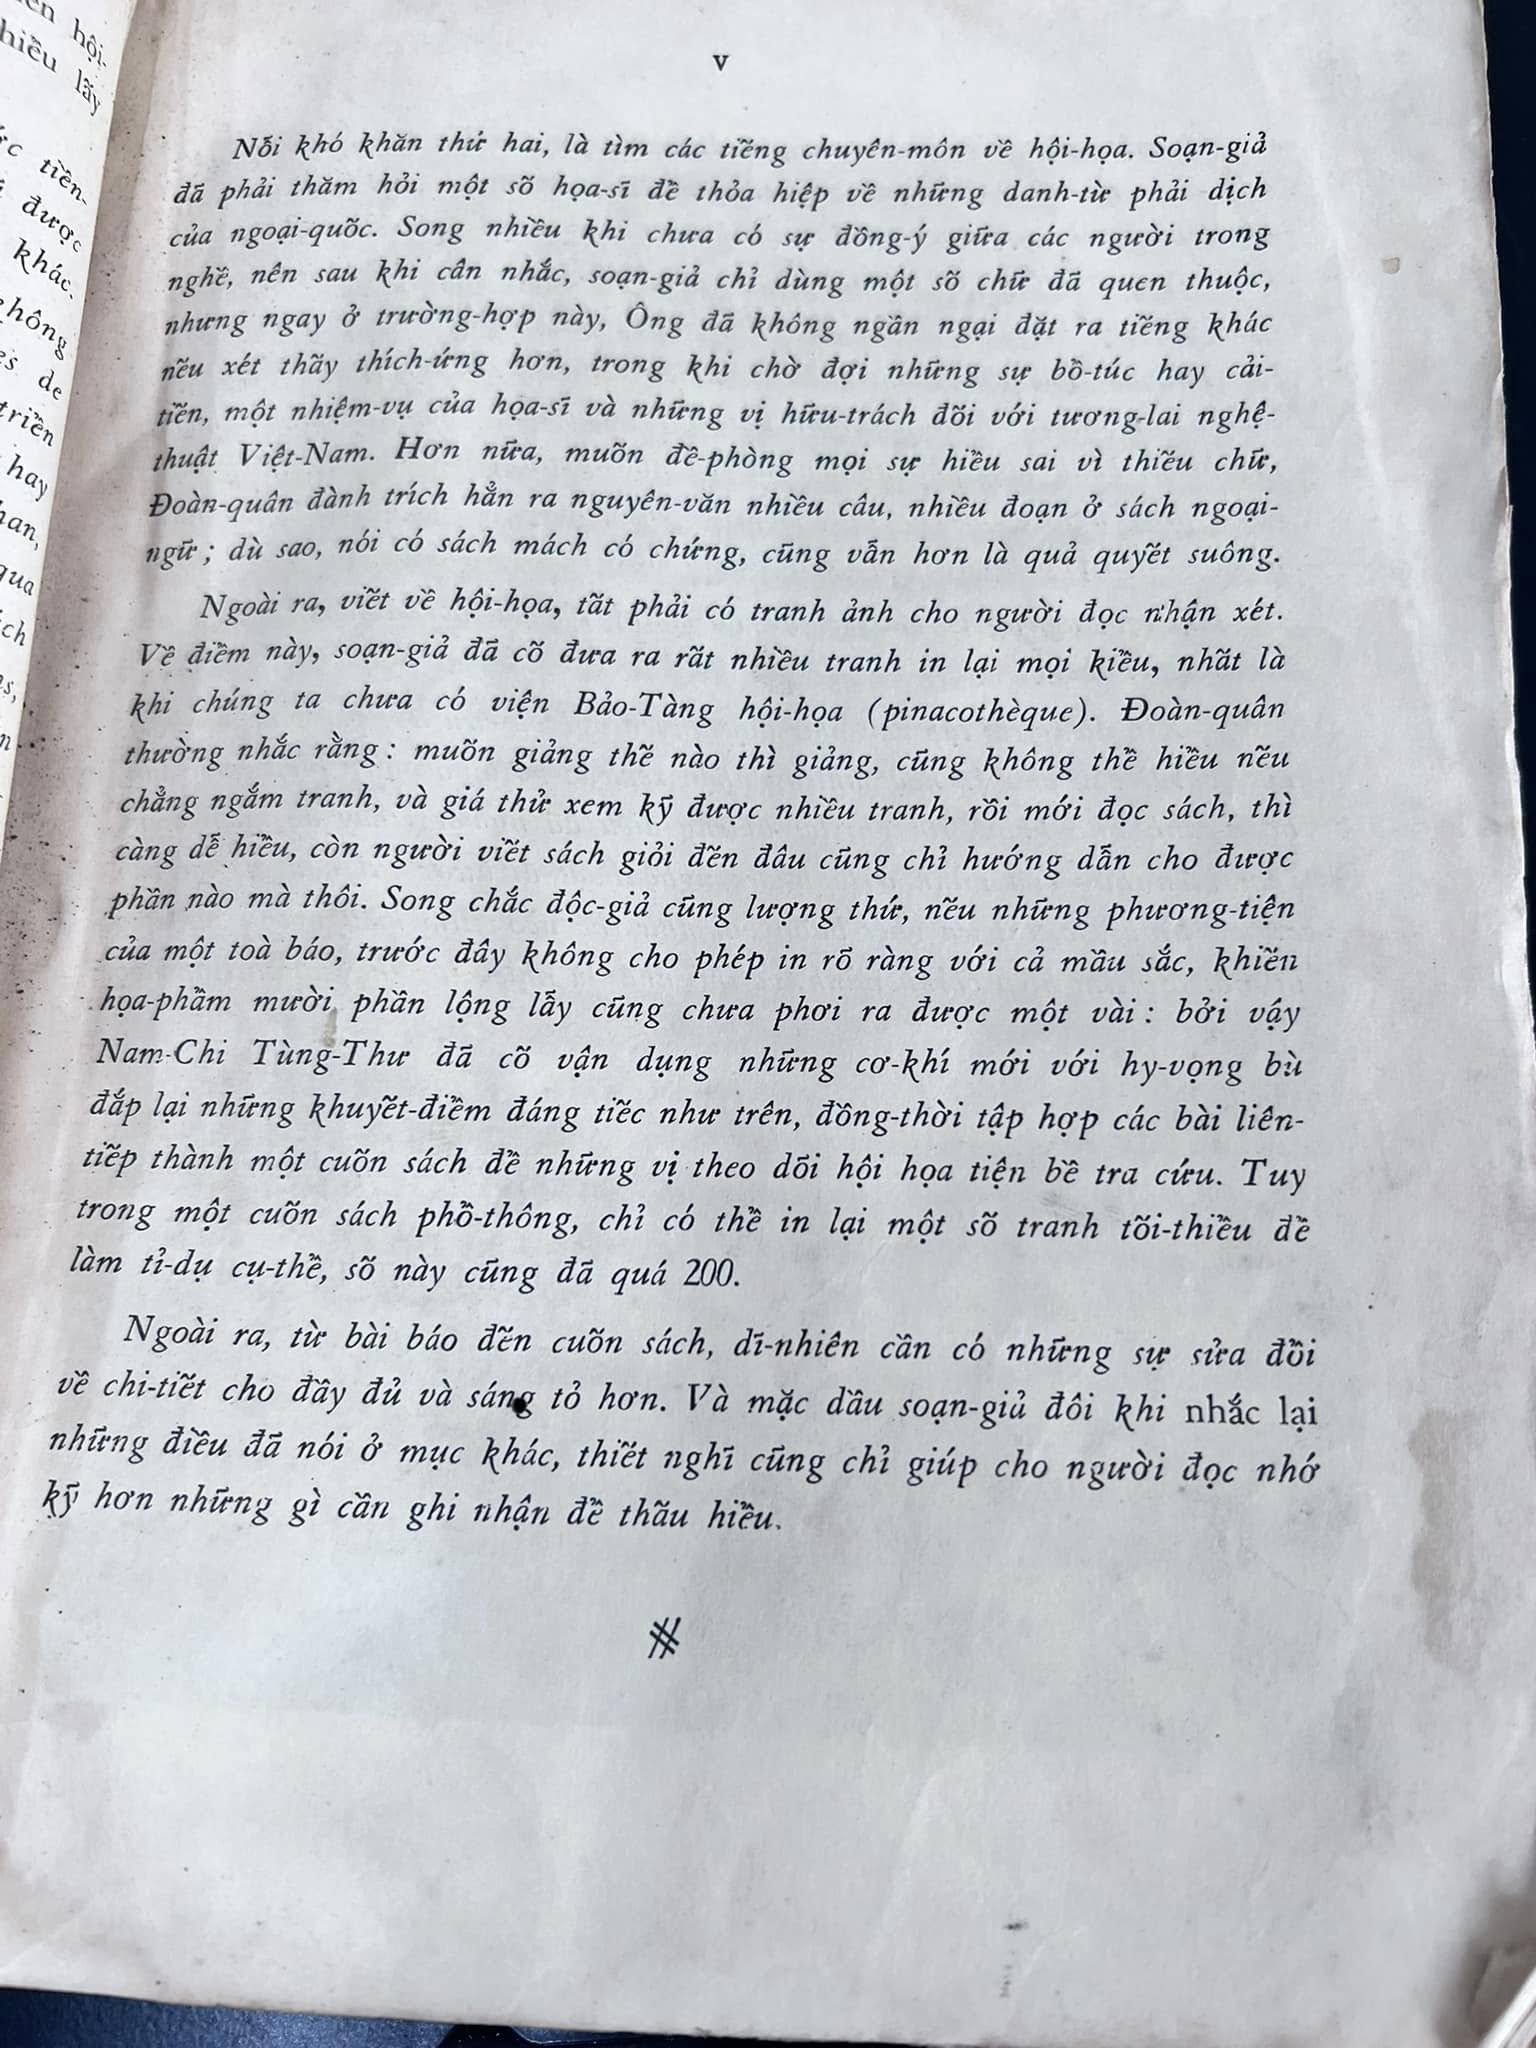 v
Nỗi khó khăn thứ hai, là tìm các tiếng chuyên-môn về hội-họa. Soạn-giả
đã phải thăm hỏi một số họa-sĩ để thỏa hiệp về những danh-từ phải dịch
của ngoại-quốc. Song nhiều khi chưa có sự đồng-ý giữa các người trong
nghề, nên sau khi cân nhắc, soạn-giả chỉ dùng một số chữ đã quen thuộc,
nhưng ngay ở trường-hợp này, Ông đã không ngần ngại đặt ra tiếng khác
nếu xét thấy thích-ứng hơn, trong khi chờ đợi những sự bổ-túc hay cải-
tiến, một nhiệm-vụ của họa-sĩ và những vị hữu-trách đối với tương-lai nghệ-
thuật Việt-Nam. Hơn nữa, muốn đề-phòng mọi sự hiểu sai vì thiếu chữ,
Đoàn-quân đành trích hẳn ra nguyên-văn nhiều câu, nhiều đoạn ở sách ngoại-
ngữ ; dù sao, nói có sách mách có chứng, cũng vẫn hơn là quả quyết suông.
Ngoài ra, viết về hội-họa, tất phải có tranh ảnh cho người đọc nhận xét.
Về điểm này, soạn-giả đã cố đưa ra rất nhiều tranh in lại mọi kiểu, nhất là
khi chúng ta chưa có viện Bảo-Tàng hội-họa (pinacothèque). Đoàn-quân
thường nhắc rằng : muốn giảng thế nào thì giảng, cũng không thể hiểu nếu
chẳng ngắm tranh, và giá thử xem kỹ được nhiều tranh, rồi mới đọc sách, thì
càng dễ hiểu, còn người viết sách giỏi đến đâu cũng chỉ hướng dẫn cho được
phần nào mà thôi. Song chắc độc-giả cũng lượng thứ, nếu những phương-tiện
của một toà báo, trước đây không cho phép in rõ ràng với cả mầu sắc, khiến
họa-phẩm mười phần lộng lẫy cũng chưa phơi ra được một vài : bởi vậy
Nam-Chi Tùng-Thư đã cố vận dụng những cơ-khí mới với hy-vọng bù
đắp lại những khuyết-điểm đáng tiếc như trên, đồng-thời tập hợp các bài liên-
tiếp thành một cuốn sách để những vị theo dõi hội họa tiện bề tra cứu. Tuy
trong một cuốn sách phổ-thông, chỉ có thể in lại một số tranh tối-thiểu để
làm tỉ-dụ cụ-thể, số này cũng đã quá 200.
Ngoài ra, từ bài báo đến cuốn sách, dĩ-nhiên cần có những sự sửa đổi
về chi-tiết cho đầy đủ và sáng tỏ hơn. Và mặc dầu soạn-giả đôi khi nhắc lại
những điều đã nói ở mục khác, thiết nghĩ cũng chỉ giúp cho người đọc nhớ
kỹ hơn những gì cần ghi nhận để thấu hiểu.